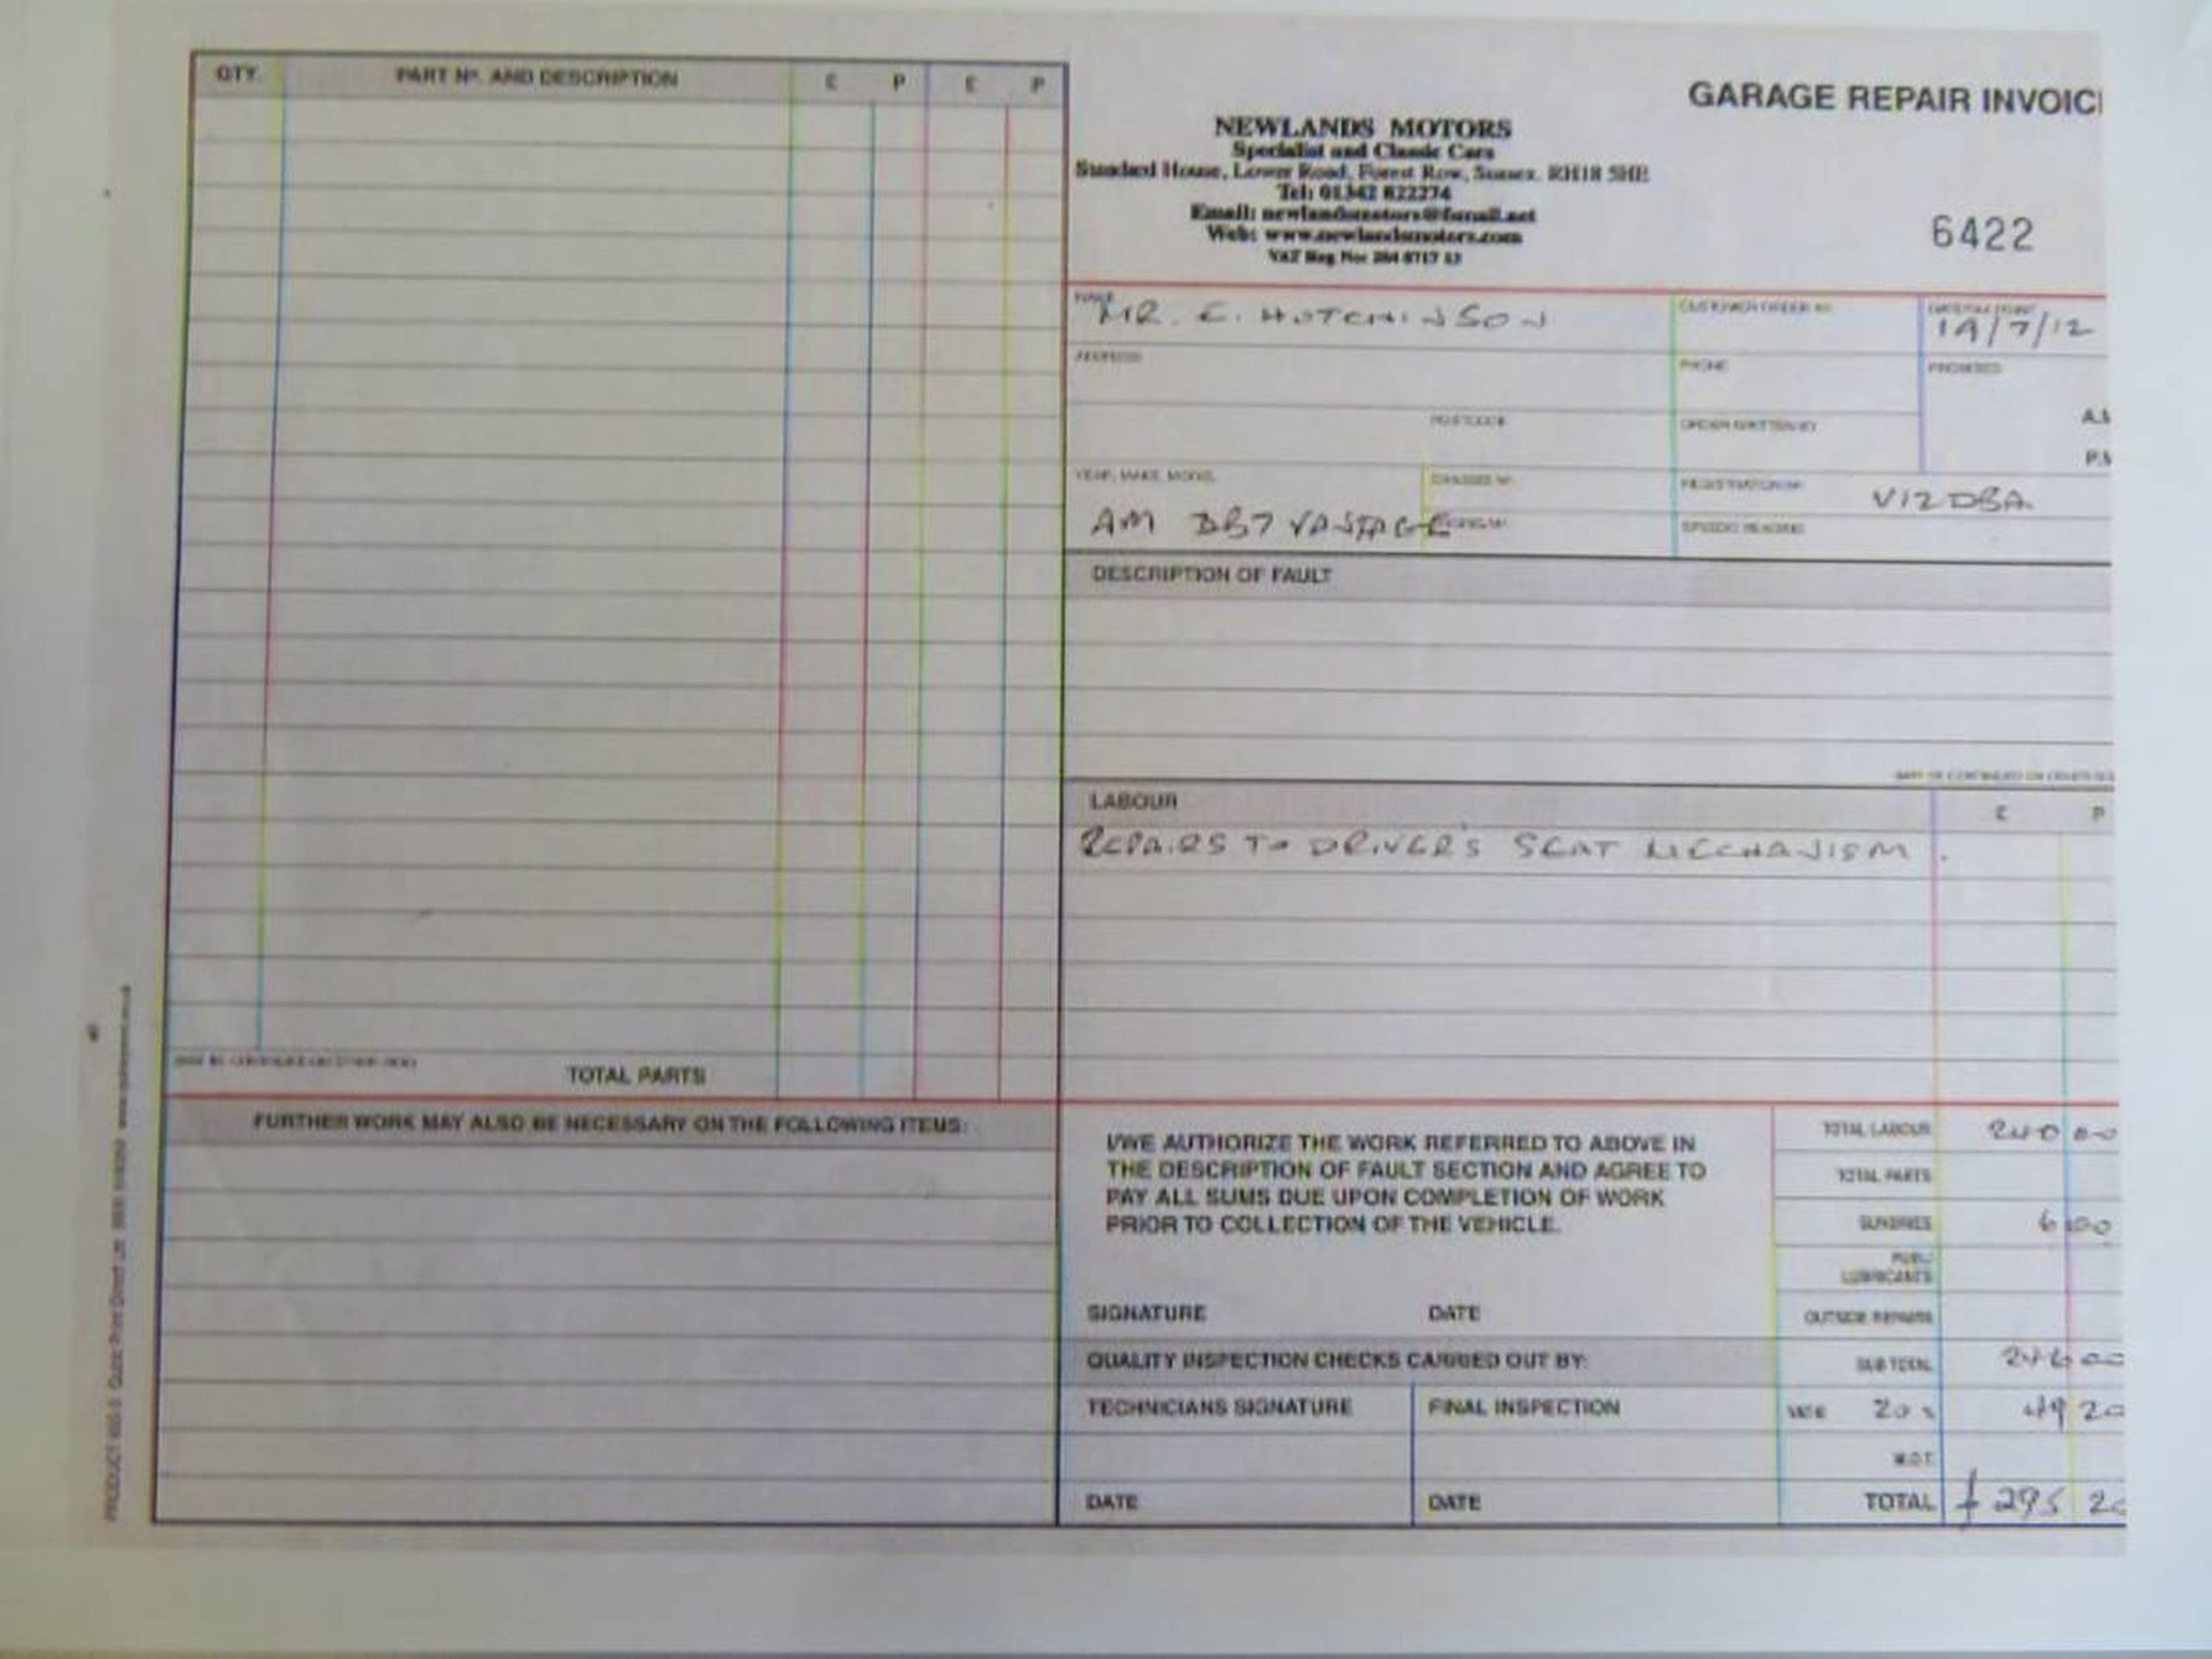 QTY. PART Nº. AND DESCRIPTION £ P £ P
GARAGE REPAIR INVOIC
NEWLANDS MOTORS
Specialist and Classic Cars
Standard House, Lower Road, Forest Row, Sussex. RH18 5HE
Tel: 01342 822274
Email: newlandsmotors@
Web: www.newlandsmotors.com
VAT Reg No:
6422
NAME MR. E. HUTCHINSON
CUSTOMER ORDER Nº
19/7/12
ADDRESS
PHONE
PROMISED
A.M
POSTCODE
ORDER WRITTEN BY
P.M
YEAR, MAKE, MODEL
CHASSIS Nº
REGISTRATION Nº V12 DBA
AM DB7 VANTAGE
SPEEDO READING
DESCRIPTION OF FAULT
LABOUR £ P
REPAIRS TO DRIVER'S SEAT MECHANISM.
TOTAL PARTS
FURTHER WORK MAY ALSO BE NECESSARY ON THE FOLLOWING ITEMS:
I/WE AUTHORIZE THE WORK REFERRED TO ABOVE IN
THE DESCRIPTION OF FAULT SECTION AND AGREE TO
PAY ALL SUMS DUE UPON COMPLETION OF WORK
PRIOR TO COLLECTION OF THE VEHICLE.
TOTAL LABOUR 240 00
TOTAL PARTS
SUNDRIES 6 00
LUBRICANTS
SIGNATURE DATE
OUTSIDE REPAIRS
QUALITY INSPECTION CHECKS CARRIED OUT BY:
SUB TOTAL 246 00
TECHNICIANS SIGNATURE FINAL INSPECTION
20 % 49 20
M.O.T.
DATE DATE
TOTAL £ 295 20